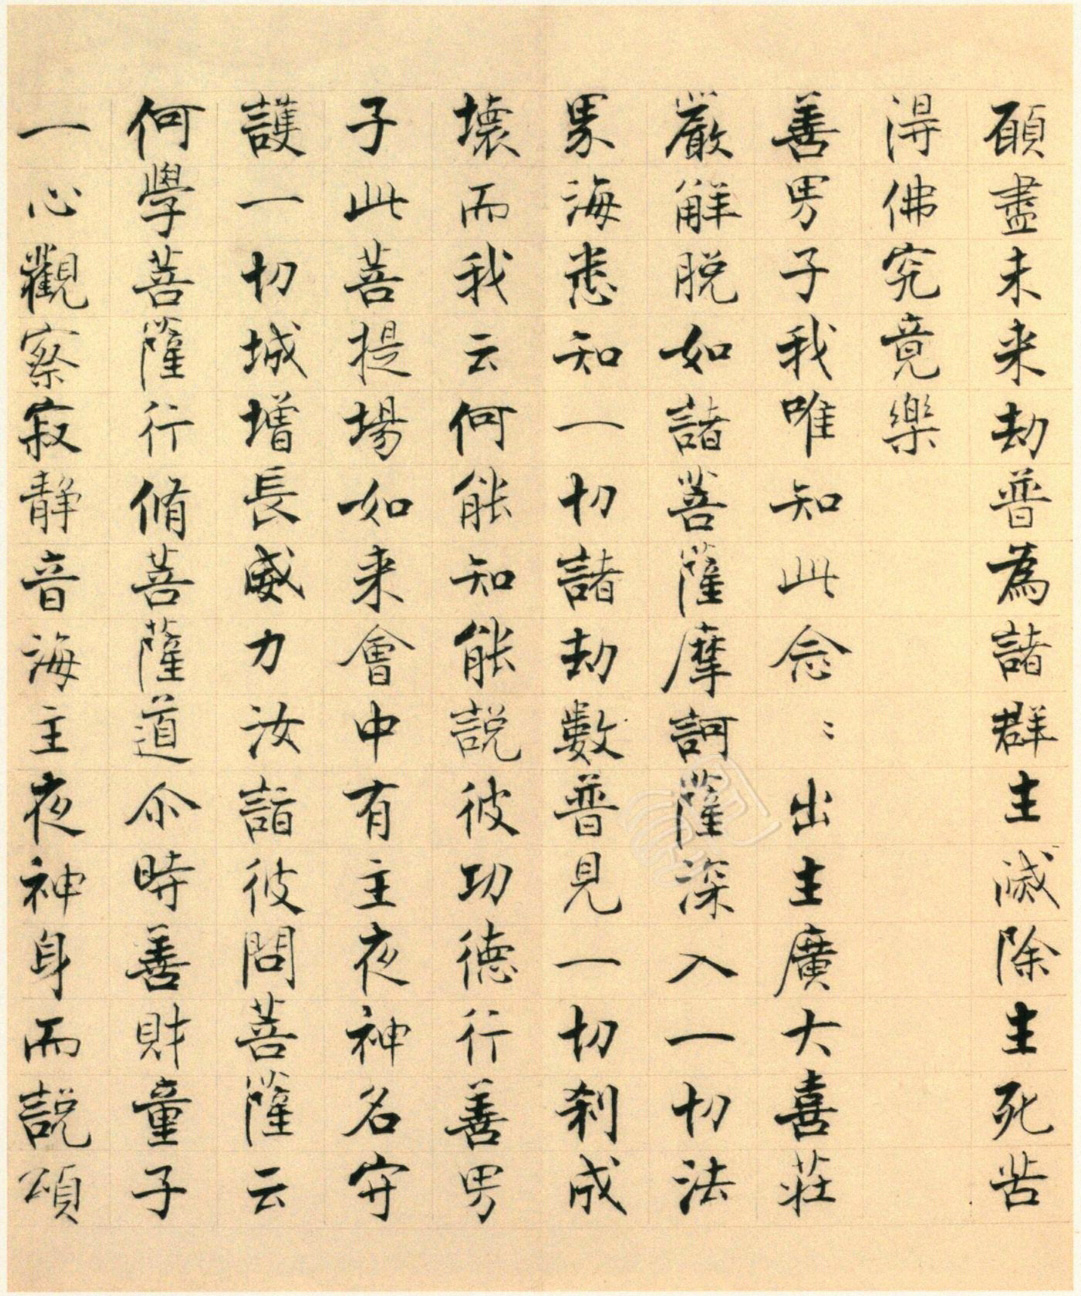 願盡未来劫普為諸群生滅除生死苦
得佛究竟樂
善男子我唯知此念〻出生廣大喜荘
嚴解脱如諸菩薩摩訶薩深入一切法
界海悉知一切諸劫數普見一切刹成
壞而我云何能知能説彼功徳行善男
子此菩提場如来會中有主夜神名守
護一切城増長威力汝詣彼問菩薩云
何學菩薩行脩菩薩道尒時善財童子
一心觀察寂静音海主夜神身而説頌